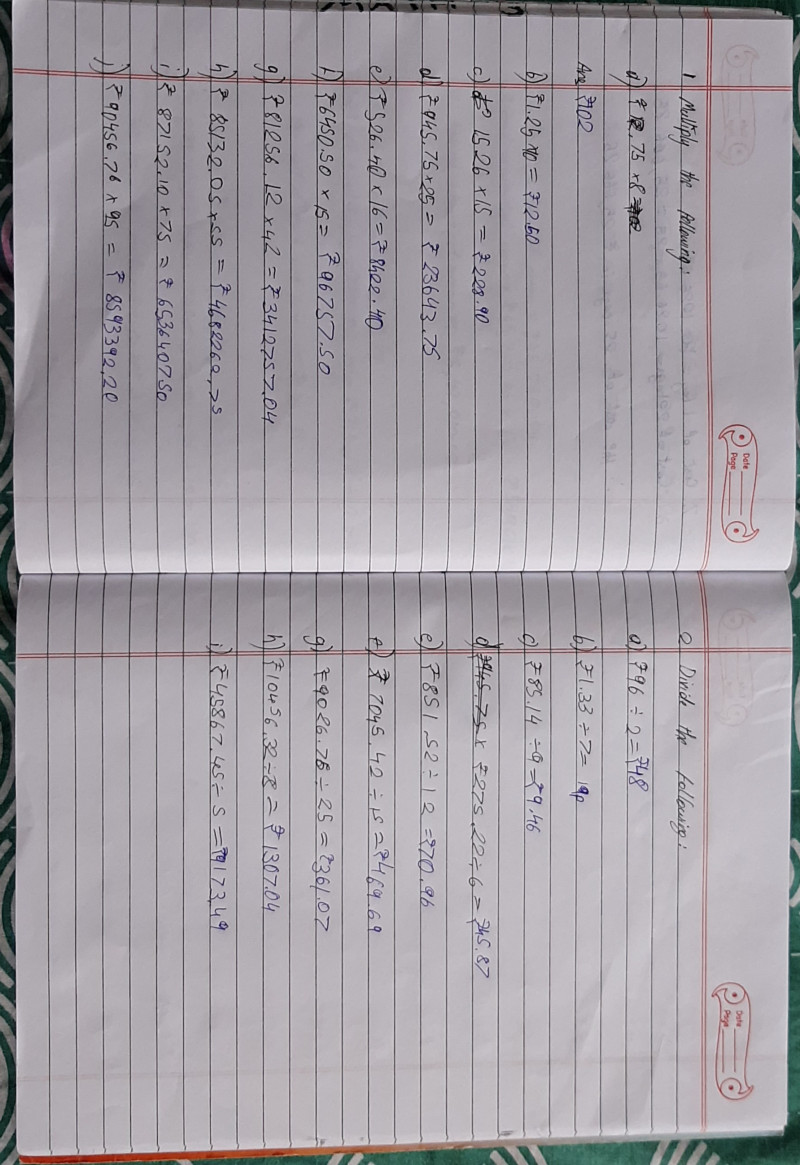 Date
Page
1 Multiply the following:
a) ₹12.75 ×8 =
Ans ₹102
b) ₹1.25 ×10 = ₹12.50
c) ₹ 15.26 ×15 = ₹228.90
d) ₹945.75×25 = ₹ 23643.75
e) ₹526.40 ×16 = ₹8422.40
f) ₹6450.50 ×15 = ₹96757.50
g) ₹81256.12 ×42 = ₹3412757.04
h) ₹ 85132.05×55 = ₹4682262.75
i) ₹ 87152.10 ×75 = ₹ 6536407.50
j) ₹90456.76 × 95 = ₹ 8593392.20
Date
Page
2 Divide the following:
a) ₹96 ÷ 2 = ₹48
b) ₹1.33 ÷ 7 = 19p
c) ₹85.14 ÷9 = ₹9.46
d) ₹945.75 × ₹275.22÷6 = ₹45.87
e) ₹851.52 ÷ 12 = ₹70.96
f) ₹ 7045.42 ÷ 15 = ₹469.69
g) ₹9026.76 ÷ 25 = ₹361.07
h) ₹10456.32 ÷8 = ₹ 1307.04
i) ₹45867.45 ÷ 5 = ₹9173.49